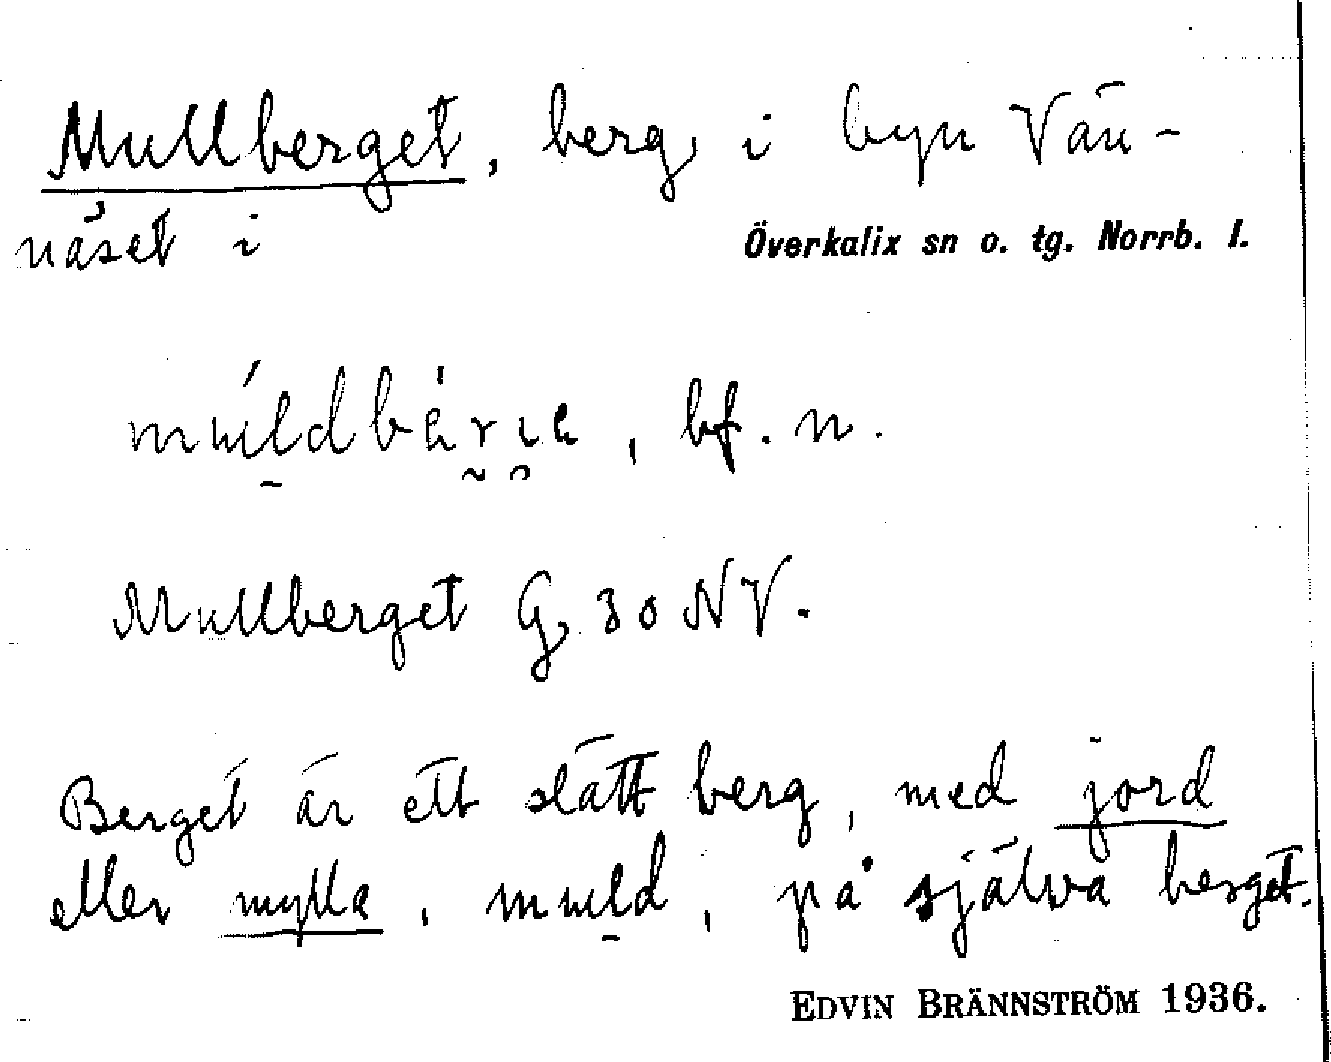 Mullberget, berg i byn Vän-
näset i Överkalix sn o. tg. Norrb. l.
bf. n.
Mullberget G, 30 NV.
Berget är ett slätt berg, med jord
eller mylla, muld, på själva berget.
EDVIN BRÄNNSTRÖM 1936.